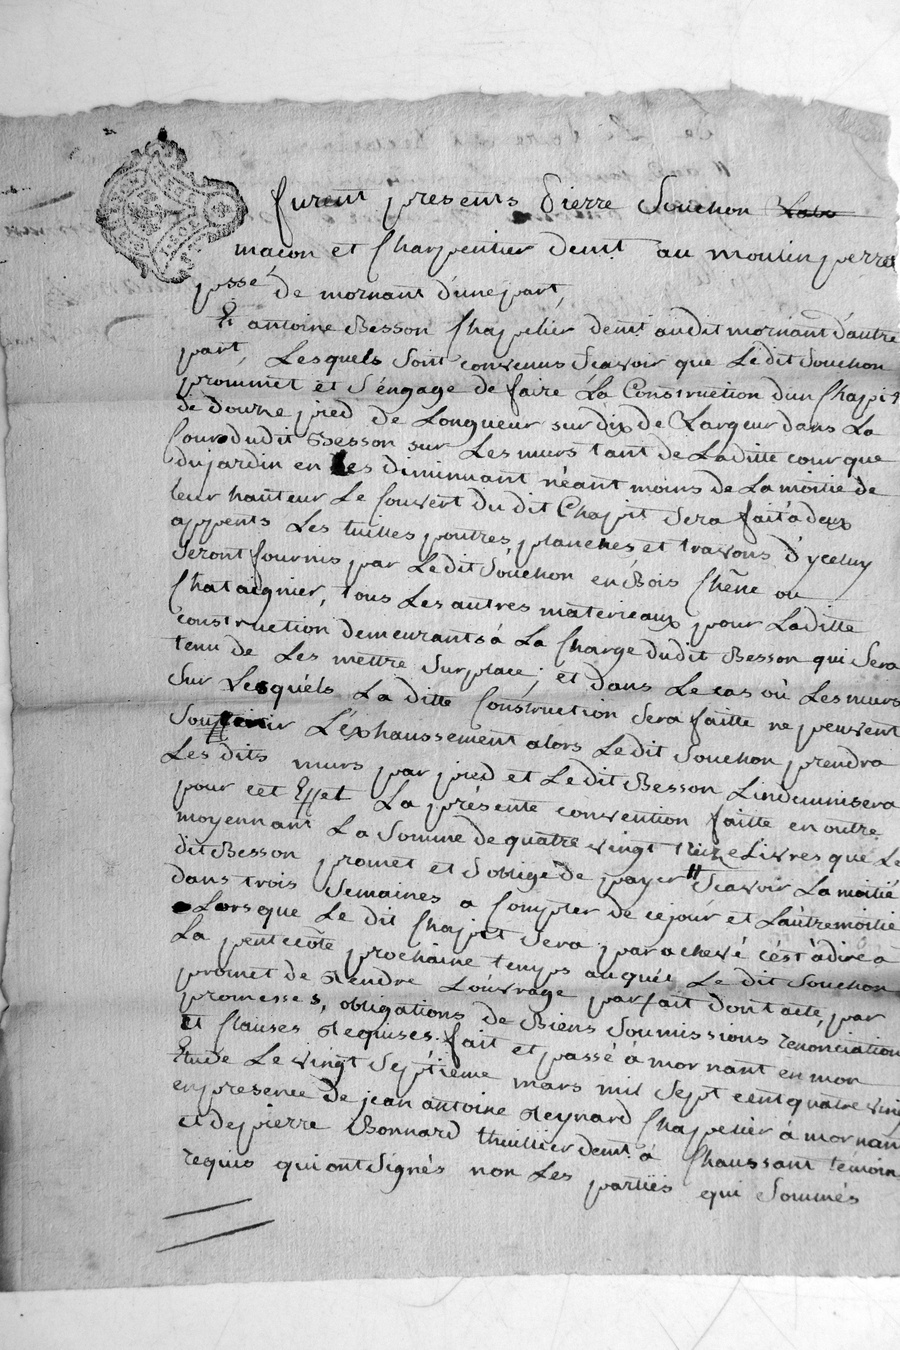 furent presents Pierre Souchon
macon et Charpentier demt au moulin perret
psse de mornant d'une part,
Et antoine Besson Chapelier demt audit mornant d'autre
part, Lesquels sont convenus Scavoir que Ledit Souchon
prommet et S'engage de faire La Construction d'un Chapit
de douze pied de Longueur sur dix de Largeur dans La
Cour dudit Besson sur Les murs tant de Laditte cour que
du jardin en Les diminuant néant moins de La moitié de
leur hauteur Le Couvert du dit Chapit Sera fait à deux
appents Les tuilles poutres planches et travons d'yceluy
Seront fournis par Ledit Souchon en Bois Chêne ou
Chataignier, tous Les autres materieaux pour Laditte
construction demeurants à La Charge dudit Besson qui Sera
tenu de Les mettre Sur place ; et dans Le cas où Les murs
Sur Lesquéls La ditte Construction Sera faitte ne peuvent
Souffrir L'éxhaussement alors Ledit Souchon prendra
Lesdits murs par pied et Ledit Besson L'indemnisera
pour cet Effet La présente convention faitte en outre
moyennant La Somme de quatre vingt treize Livres que Le
dit Besson promet et S'oblige de payer Scavoir La moitié
dans trois Semaines a Compter de ce jour et L'autre moitié
Lorsque Le dit Chapit Sera parachevé c'est à dire à
La pentecôte prochaine temps auquel Le dit Souchon
promet de rendre L'ouvrage parfait dont acte, par
promesses, obligations de Biens Soumissions renonciation
et Clauses requises. fait et passé à mornant en mon
Etude Le vingt Septième mars mil Sept cent quatre ving
en presence de jean antoine Reynard Chapelier à mornan
et de pierre Bonnard thuillier demt à Chaussant témoin
requis qui ont Signés non Les parties qui Sommés